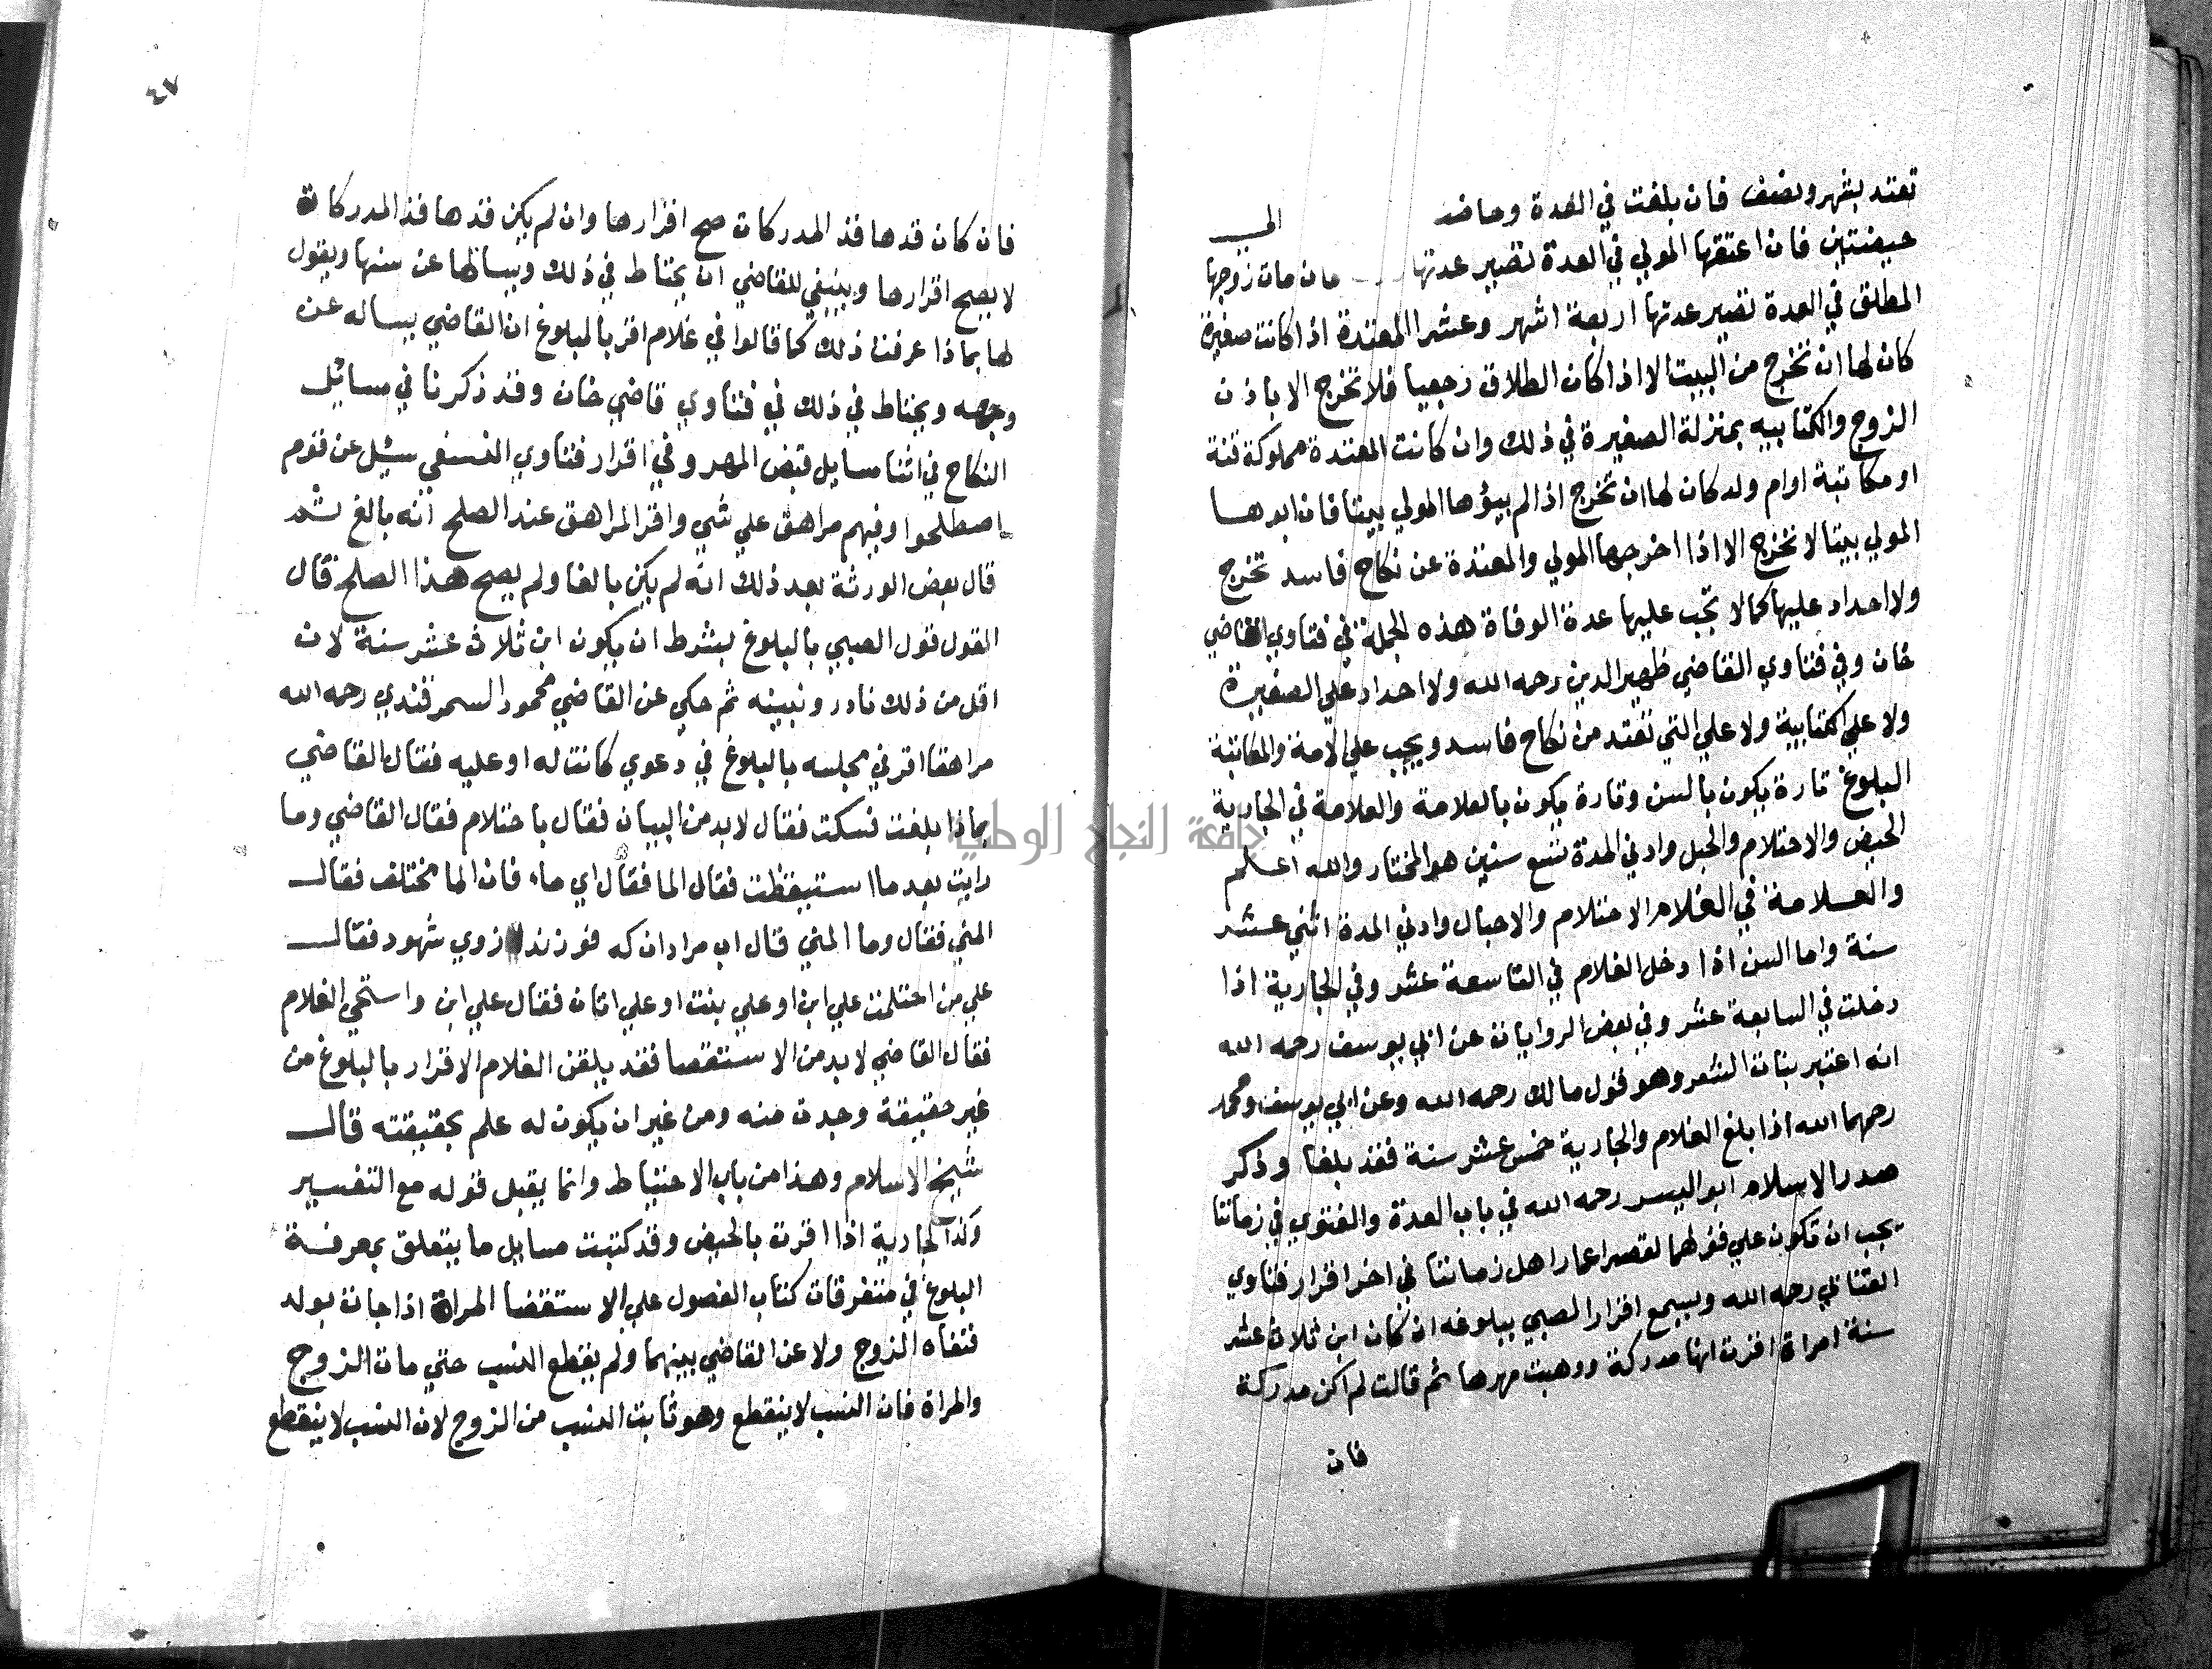 تعتد بشهر ونصف فان بلغت في العدة وحاضت الي
حيضتين فان اعتقها المولي في العدة تصير عدتها فان مات زوجها
المطلق في العدة تصير عدتها اربعة اشهر وعشرا المعتدة اذا كانت صغيرة
كان لها ان تخرج من البيت الا اذا كان الطلاق رجعيا فلا تخرج الا باذن
الزوج والكتابيه بمنزلة الصغيرة في ذلك وان كانت المعتدة مملوكة قنة
او مكاتبة او ام ولد كان لها ان تخرج اذا لم يبؤها المولي بيتا فان ابوها
المولي بيتا لا تخرج الا اذا اخرجها المولي والمعتدة عن نكاح فاسد تخرج
ولا احداد عليها كما لا تجب عليها عدة الوفاة هذه الجملة في فتاوي القاضي
خان وفي فتاوي القاضي ظهير الدين رحمه الله ولا احداد علي الصغيرة
ولا علي الكتابية ولا علي التي تعتد من نكاح فاسد ويجب علي الامة والمكاتبة
البلوغ تارة يكون بالسن وتارة يكون بالعلامة والعلامة في الجارية
الحيض والاحتلام والحبل وادني المدة تسع سنين هو المختار والله اعلم
والعلامة في الغلام الاحتلام والاحبال وادني المدة اثني عشر
سنة واما السن اذا دخل الغلام في التاسعة عشر وفي الجارية اذا
دخلت في السابعة عشر وفي بعض الروايات عن ابي يوسف رحمه الله
انه اعتبر بنات الشعر وهو قول مالك رحمه الله وعن ابي يوسف ومحمد
رحمهما الله اذا بلغ الغلام والجارية خمس عشر سنة فقد بلغا وذكر
صدر الاسلام ابو اليسر رحمه الله في باب العدة والفتوي في زماننا
يجب ان تكون علي قولهما لقصر اعمار اهل زماننا في اخر اقرار فتاوي
العتابي رحمه الله ويسمع اقرار الصبي ببلوغه ان كان ابن ثلاث عشر
سنة امراة اقرت انها مدركة ووهبت مهرها ثم قالت لم اكن مدركة
فان
٤٧
فان كان قدها قد المدركات صح اقرارها وان لم يكن قدها قد المدركات
لا يصح اقرارها وينبغي للقاضي ان يحتاط في ذلك ويسالها عن سنها ويقول
لها بماذا عرفت ذلك كما قالوا في غلام اقر بالبلوغ ان القاضي يساله عن
وجهه ويحتاط في ذلك في فتاوي قاضي خان وقد ذكرنا في مسائل
النكاح في اثنا مسايل قبض المهر وفي اقرار فتاوي النسفي سئيل عن قوم
اصطلحوا وفيهم مراهق علي شي واقر المراهق عند الصلح انه بالغ ثم
قال بعض الورثة بعد ذلك انه لم يكن بالغا ولم يصح هذا الصلح قال
القول قول الصبي بالبلوغ بشرط ان يكون ابن ثلاث عشر سنة لان
اقل من ذلك نادر ونبينه ثم حكي عن القاضي محمود السمرقندي رحمه الله
مراهقا اقر في مجلسه بالبلوغ في دعوي كانت له او عليه فقال القاضي
بماذا بلغت فسكت فقال لا بد من البيان فقال باحتلام فقال القاضي وما
رايت بعد ما استيقظت فقال الما فقال اي ماء فان الما مختلف فقال
المني فقال وما المني قال اب مرادان كه فورزند ازوي شهود فقال
علي من احتلمت علي ابن او علي بنت او علي اتان فقال علي ابن واستحي الغلام
فقال القاضي لا بد من الاستقصا فقد يلقن الغلام الاقرار بالبلوغ من
غير حقيقة وجدت منه ومن غير ان يكون له علم بحقيقته قال
شيخ الاسلام وهذا من باب الاحتياط وانما يقبل قوله مع التفسير
وكذا الجارية اذا اقرت بالحيض وقد كتبت مسايل ما يتعلق بمعرفة
البلوغ في متفرقات كتاب الفصول علي الاستقضا المراة اذا جات بولد
فنفاه الزوج ولاعن القاضي بينهما ولم يقطع النسب حتي مات الزوج
والمراة فان النسب لا ينقطع وهو ثابت النسب من الزوج لان النسب لا ينقطع
جامعة النجاح الوطنية